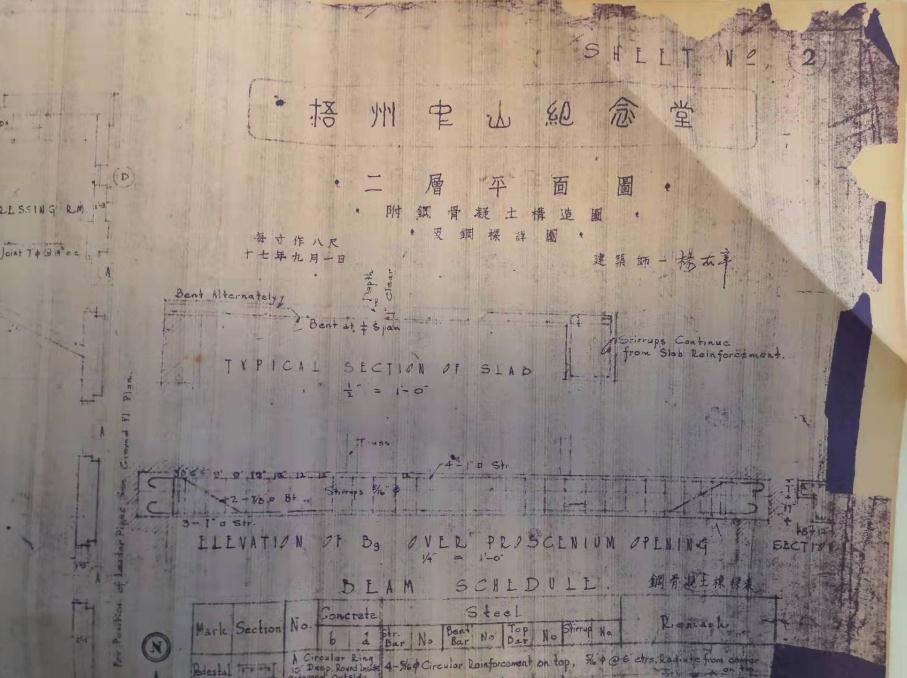 SHEET No. 2
梧州中山紀念堂
二層平面圖
附鋼骨凝土構造圖
及鋼樑詳圖
每寸作八尺
十七年九月一日
建築師
D
Joint
Bent Alternately
Depth
Clear
Bent at Span
Stirrups Continue
from Slab Reinforcement.
TYPICAL SECTION OF SLAB
½" = 1'-0"
For Position of Leader Pipes See Ground Fl. Plan.
Truss
4-1"□ Str.
2-7/8□ Bt.
Stirrups 5/16"φ
3-1"□ Str.
ELEVATION OF B9 OVER PROSCENIUM OPENING
¼" = 1'-0"
SECTION
BEAM SCHEDULE.
鋼骨凝土樑
Mark Section No. Concrete Steel
b d Str. Bar No Bent Bar No Top Bar No Stirrup No
N
Pedestal A Circular Ring
Deep. Round Inside 4-5/8φ Circular Reinforcement on top, @ 6 ctrs. Radiate from center
on top